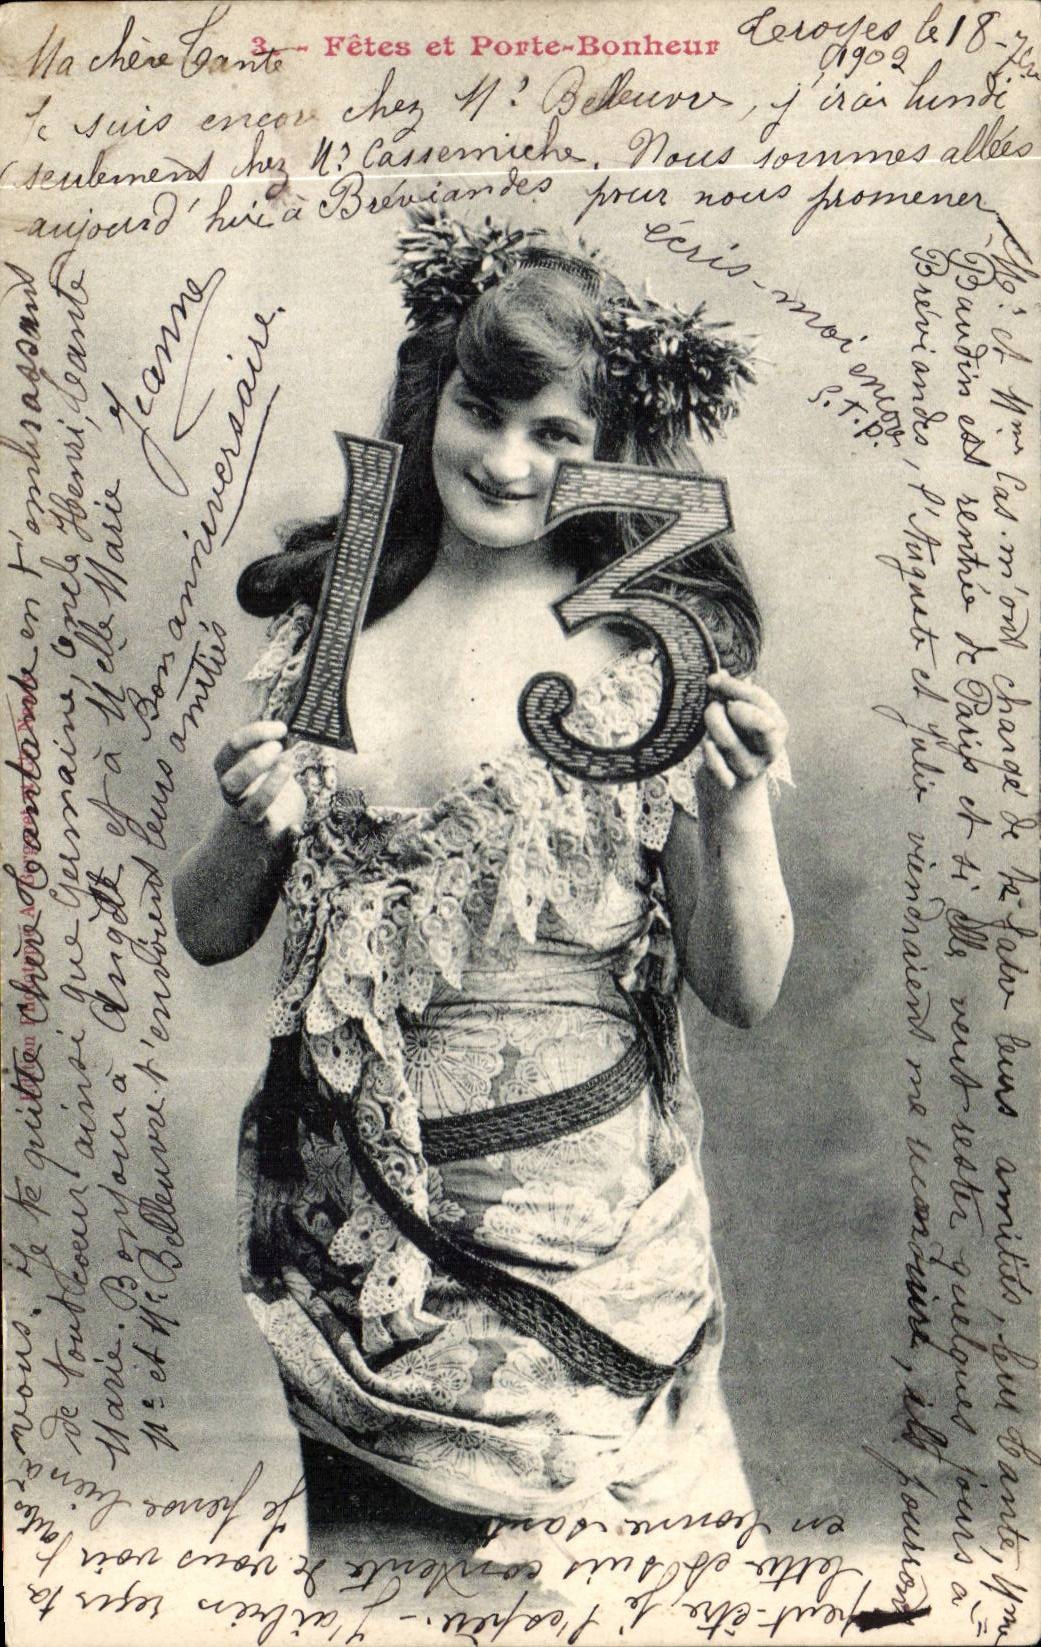 3. - Fêtes et Porte-Bonheur
le 18
1902
Ma chère Tante
Je suis encore chez Mr Belleuvre, j'irai lundi
seulement chez Mr Cassemiche. Nous sommes allées
aujourd'hui à Bréviandes pour nous promener
Mr et Mme Cas. m'ont chargé de te faire leurs amitiés, leur Tante, Mme
Baudin est rentrée de Paris et si elle veut rester quelques jours à
Bréviandes, l'Auguste et Julie viendraient me, ils pourront
peut-être, je l'espère. - J'ai bien reçu ta
lettre et suis contente de vous voir
en bonne santé
Je pense bien à
vous. Je te quitte chère Tantante en t'embrassant
de tout coeur ainsi que Germaine, oncle Henri, tante
Marie. Bonjour à Angèle et à Melle Marie
Mr et Me Belleuvre t'envoient leurs amitiés
Jeanne
Bon anniversaire.
écris-moi encore
S. t. p.
13